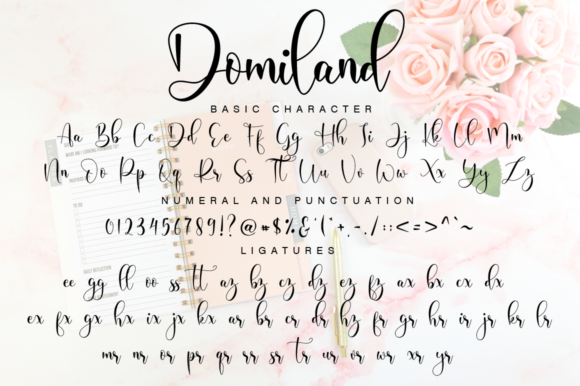 Domiland
BASIC CHARACTER
Aa Bb Cc Dd Ee Ff Gg Hh Ii Jj Kk Ll Mm
Nn Oo Pp Qq Rr Ss Tt Uu Vv Ww Xx Yy Zz
NUMERAL AND PUNCTUATION
0123456789!?@#$%&'(*+,-./:;<=>^`~
LIGATURES
ee gg ll oo ss tt az bz cz dz ez fz ax bx cx dx
ex fx gx hx ix jx kx ar br cr dr hr fr gr hr ir jr kr lr
mr nr or pr qr rr sr tr ur vr wr xr yr
TO DO: